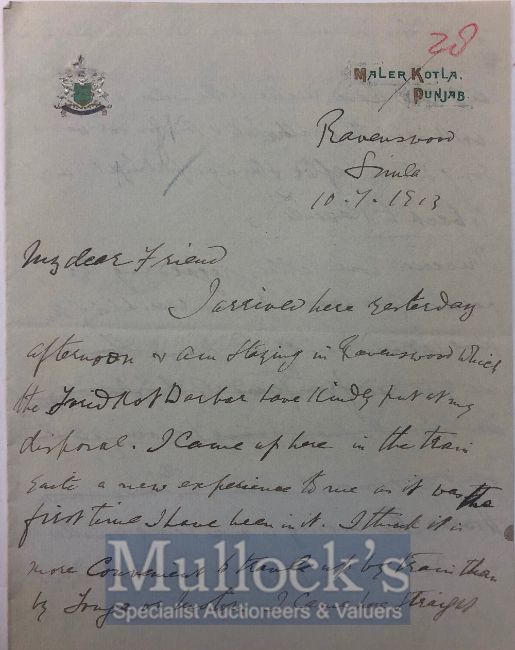 28
MALER KOTLA.
PUNJAB.
Ravenswood
Simla
10.7.1913
My dear Friend
I arrived here yesterday
afternoon & am staying in Ravenswood which
the Faridkot Darbar have kindly put at my
disposal. I came up here in the train
quite a new experience to me as it was the
first time I have been in it. I think it is
more convenient to travel up by train than
by Tonga or I came straight
Mullock's
Specialist Auctioneers & Valuers